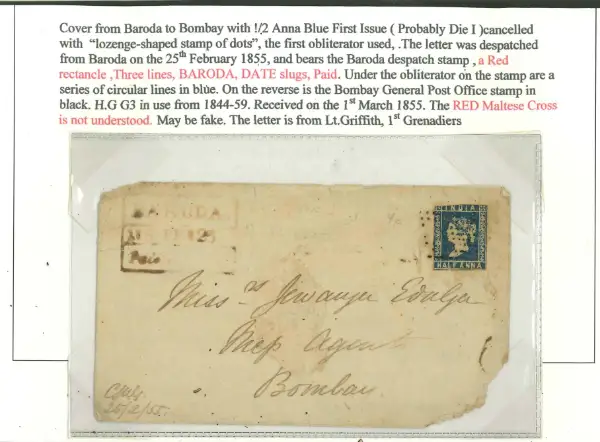 Cover from Baroda to Bombay with !/2 Anna Blue First Issue ( Probably Die I )cancelled
with “lozenge-shaped stamp of dots”, the first obliterator used, .The letter was despatched
from Baroda on the 25th February 1855, and bears the Baroda despatch stamp , a Red
rectancle ,Three lines, BARODA, DATE slugs, Paid. Under the obliterator on the stamp are a
series of circular lines in blue. On the reverse is the Bombay General Post Office stamp in
black. H.G G3 in use from 1844-59. Received on the 1st March 1855. The RED Maltese Cross
is not understood. May be fake. The letter is from Lt.Griffith, 1st Grenadiers
BARODA
Paid
INDIA
HALF ANNA
Miss rs Jewanjee Edaljee
Mess Agents
Bombay
25/2/55